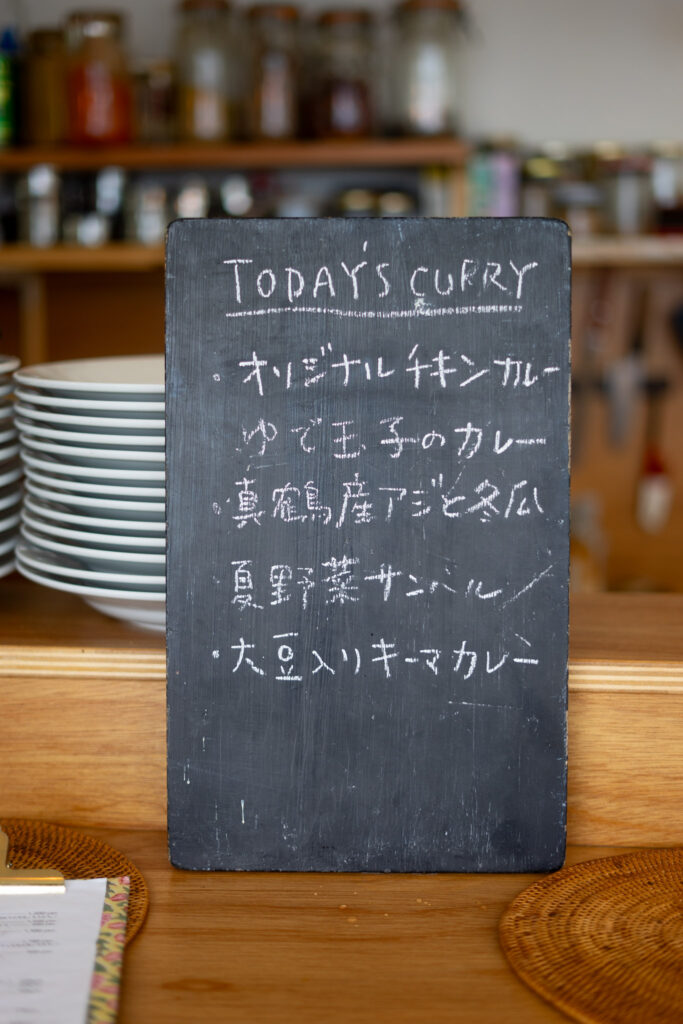 TODAY'S CURRY
・オリジナルチキンカレー
ゆで玉子のカレー
・真鶴産アジと冬瓜
夏野菜サンバル/
・大豆入りキーマカレー